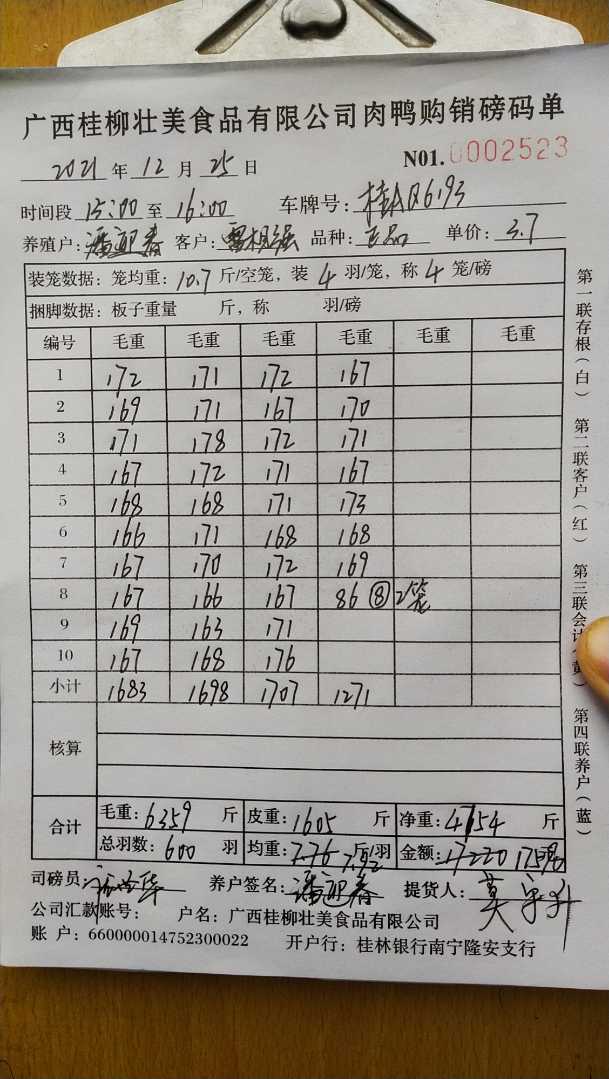 广西桂柳壮美食品有限公司肉鸭购销磅码单
2021 年 12 月 25 日 N01.0002523
时间段 15:00 至 16:00 车牌号: 桂AQ6.93
养殖户: 潘迎春 客户: 相强 品种: 正品 单价: 3.7
装笼数据: 笼均重: 10.7 斤/空笼, 装 4 羽/笼, 称 4 笼/磅
捆脚数据: 板子重量 斤, 称 羽/磅
编号 毛重 毛重 毛重 毛重 毛重 毛重
1 172 171 172 167
2 169 171 167 170
3 171 178 172 171
4 167 172 171 167
5 168 168 171 173
6 166 171 168 168
7 167 170 172 169
8 167 166 167 86 ⑧ 2笼
9 169 163 171
10 167 168 176
小计 1683 1698 1707 1271
核算
合计 毛重: 6359 斤 皮重: 1605 斤 净重: 4754 斤
总羽数: 600 羽 均重: 7.76 7.92 斤/羽 金额: 17220
司磅员: 养户签名: 潘迎春 提货人: 莫
公司汇款账号: 户名: 广西桂柳壮美食品有限公司
账 户: 660000014752300022 开户行: 桂林银行南宁隆安支行
第一联存根(白) 第二联客户(红) 第三联会计(黄) 第四联养户(蓝)